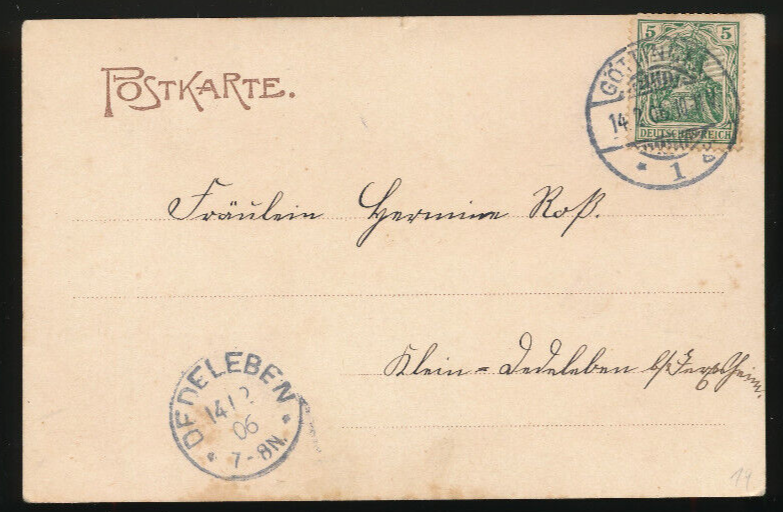 POSTKARTE.
5 5
DEUTSCHES REICH
14.2.06.10-
* 1 c
Fräulein Hermine Roß.
Klein-Dedeleben b/
DEDELEBEN
14 2
06
* 7-8N. *
19